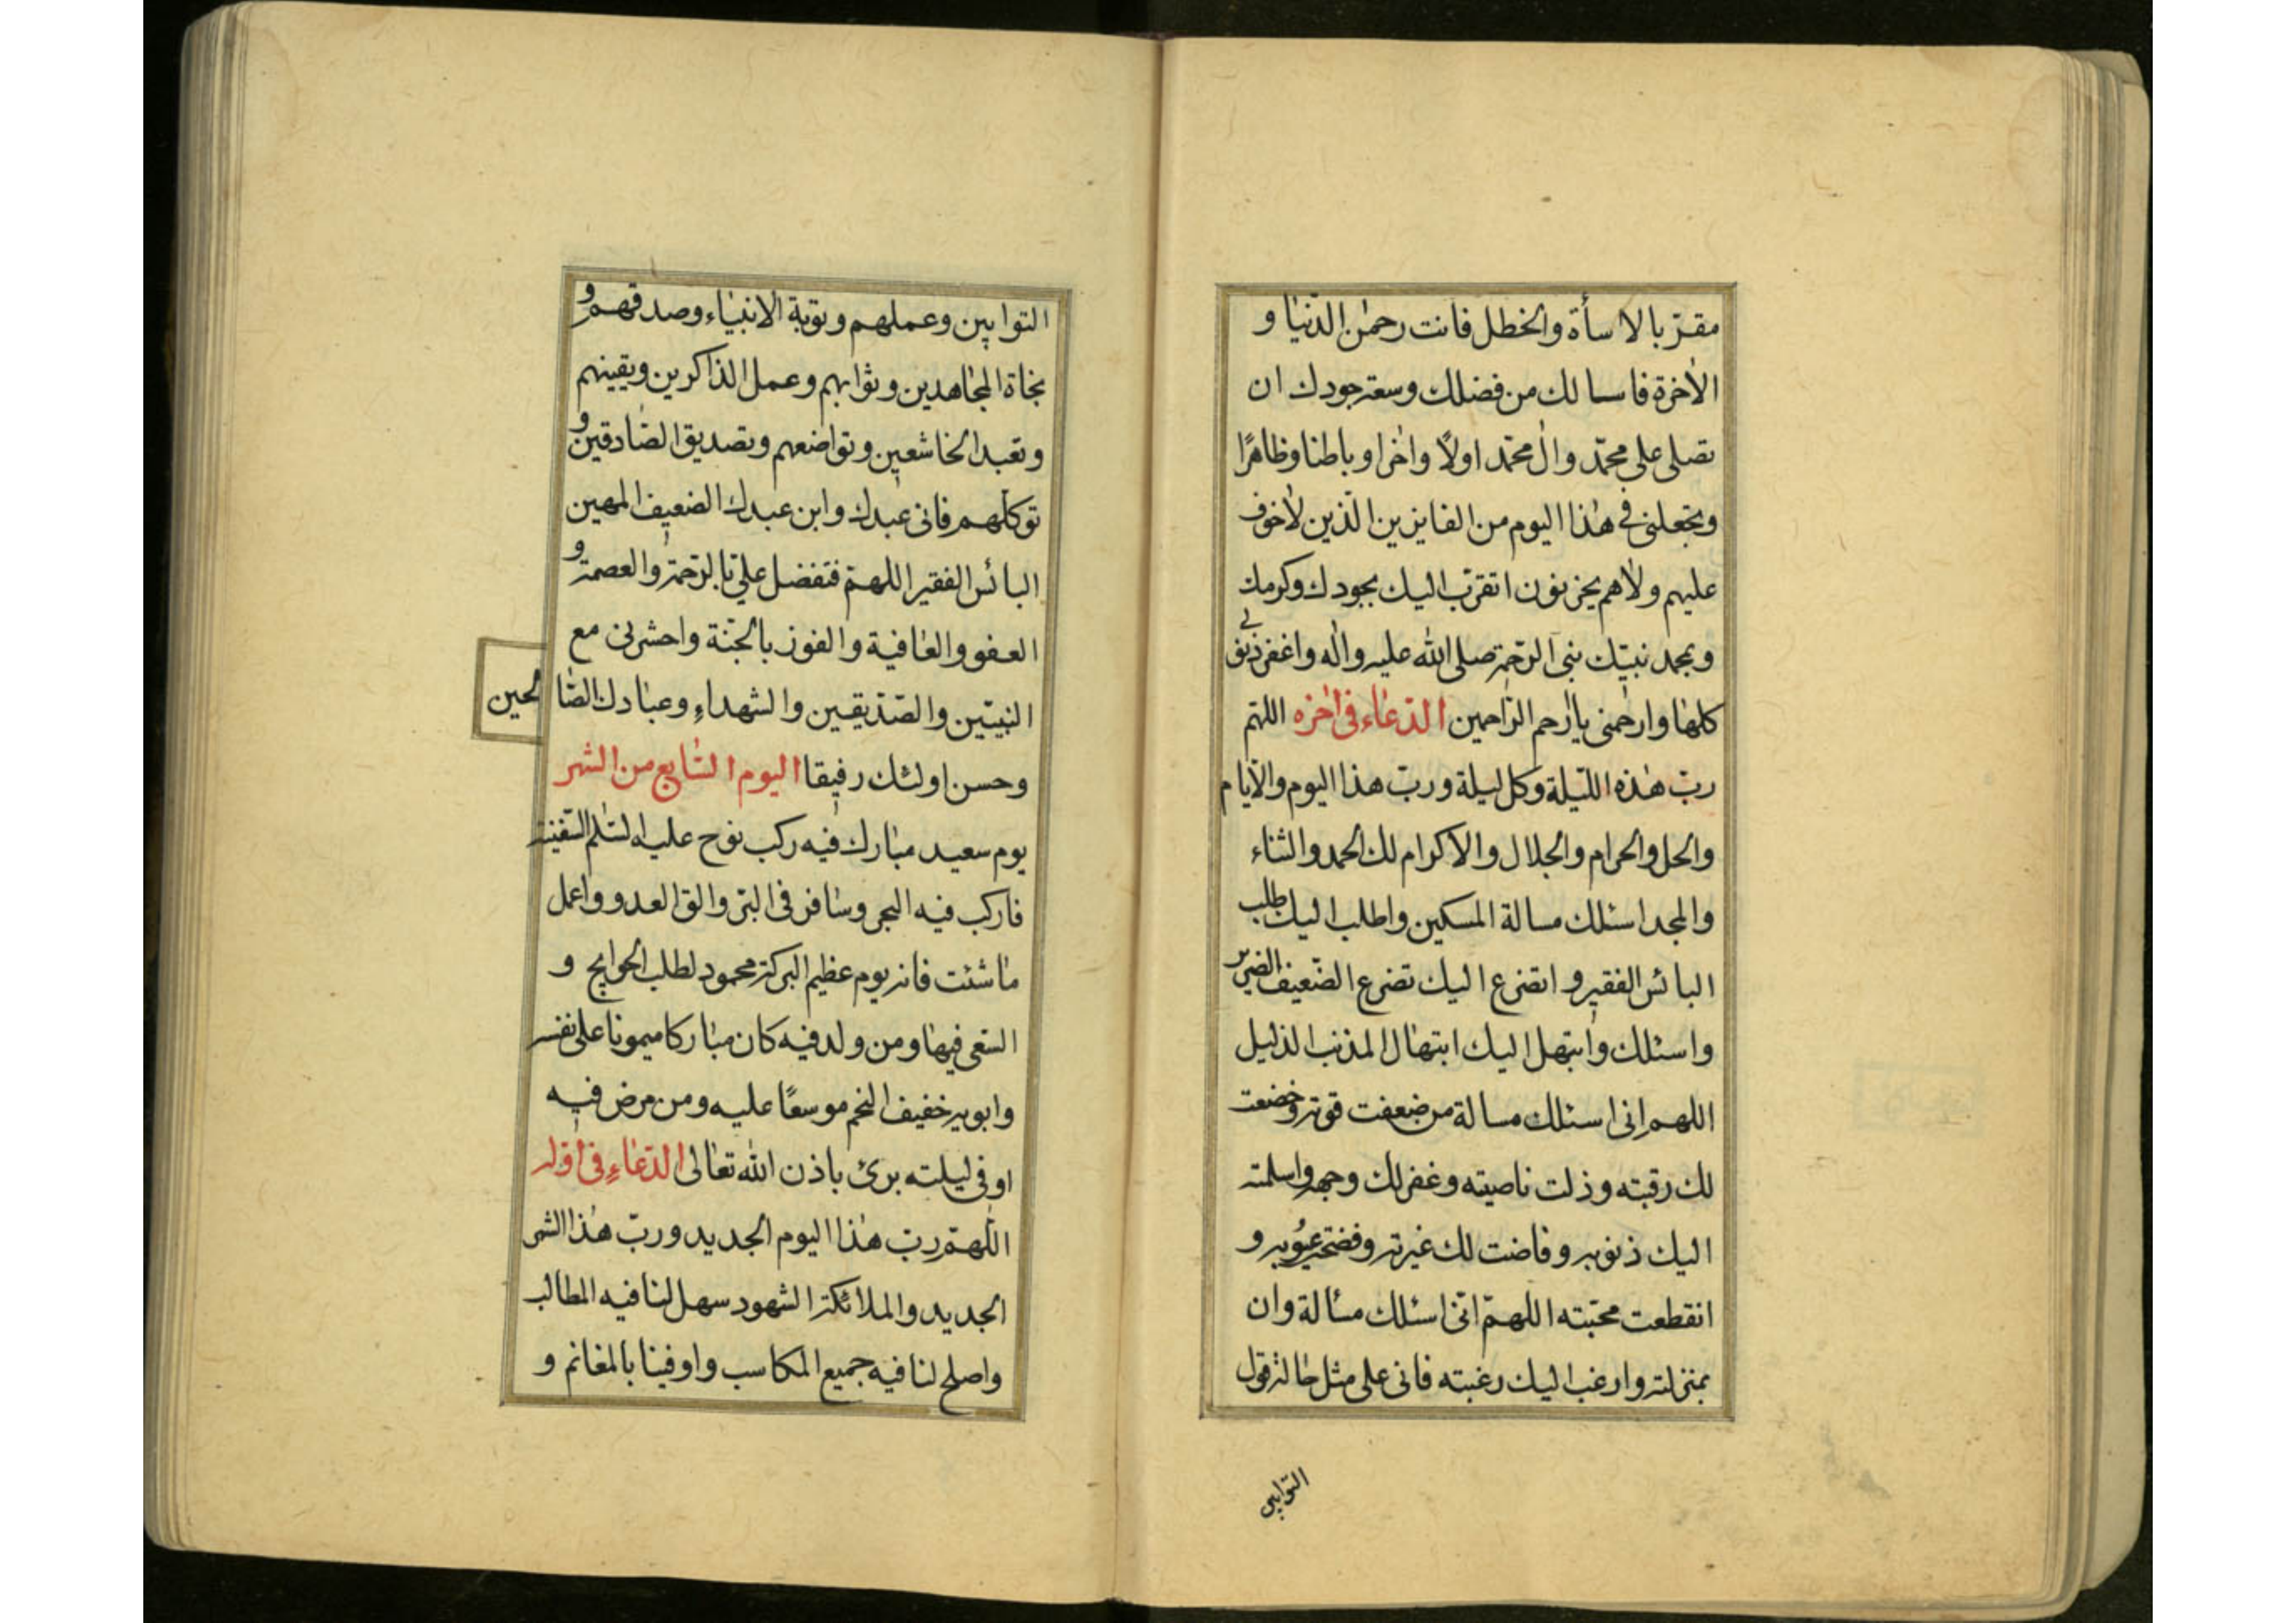 مقرّ بالاسأة والخطل فانت رحمٰن الدّنيٰا و
الاٰخرة فاسالك من فضلك وسعة جودك ان
تصلى على محمّد واٰل محمّد اولاً واٰخرا وباطنا وظاهرًا
وتجعلنى فى هٰذا اليوم من الفايزين الّذين لاٰخوف
عليهم ولاٰهم يحزنون اتقرّب اليك بجودك وكرمك
وبمحمد نبيّك نبى الرّحمة صلى الله عليه واٰله واغفر ذنوبى
كلهٰا وارحمنى ياارحم الرّاحمين الدّعاء فى اٰخره اللهّم
ربّ هٰذه اللّيلة وكل ليلة وربّ هذا اليوم والايّام
والحل والحرام والجلال والاكرام لك الحمد والثناء
والمجد اسئلك مسالة المسكين واطلب اليك طلب
البائس الفقير واتضرع اليك تضرع الضّعيف الضرير
واسئلك وابتهل اليك ابتهٰال المذنب الذليل
اللهم انى اسئلك مسالة من ضعفت قوته وخضعت
لك رقبته وذلت ناصيته وغفر لك وجهه واسلمته
اليك ذنوبه وفاضت لك غيرته وفضحته عيُوبه و
انقطعت محبّته اللهمّ انّى اسئلك مسٰالة وان
بمنزلته وارغب اليك رغبته فانى على مثل حٰاله قول
التوابين
التوابين وعملهم وتوبة الانبيٰاء وصدقهم و
نجاة المجٰاهدين وثوابهم وعمل الذاكرين ويقينهم
وتعبد الخاشعين وتواضعهم وتصديق الصّادقين و
توكلهم فانى عبدك وابن عبدك الضعيف المهين
البائس الفقير اللهمّ فتفضل علىّ بالرّحمة والعصمة و
العفو والعٰافية والفوز بالجّنة واحشرنى مع
النبيّين والصّدّيقين والشهداءِ وعبٰادك الصّالحين
وحسن اولئك رفيقا اليوم السّابع من الشهر
يوم سعيد مبٰارك فيه ركب نوح عليه السّلم السّفينة
فاركب فيه البحر وسٰافر فى البرّ والق العدو واعمل
مٰا شئت فانه يوم عظيم البركة محمود لطلب الحوايج و
السّعى فيهٰا ومن ولد فيه كان مبٰاركا ميمونا على نفسه
وابويه خفيف النجم موسعًا عليه ومن مرض فيه
اوفى ليلته برئ باذن الله تعٰالى الدّعٰاءِ فى اوّله
اللّهمّ ربّ هٰذا اليوم الجديد وربّ هٰذا الشهر
الجديد والملائكة الشهود سهل لنٰا فيه المطالب
واصلح لنا فيه جميع المكاسب واوفينا بالمغانم و